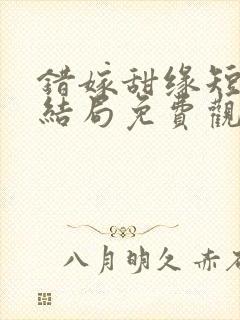 错嫁甜缘短
结局免費觀
八月明久 赤石